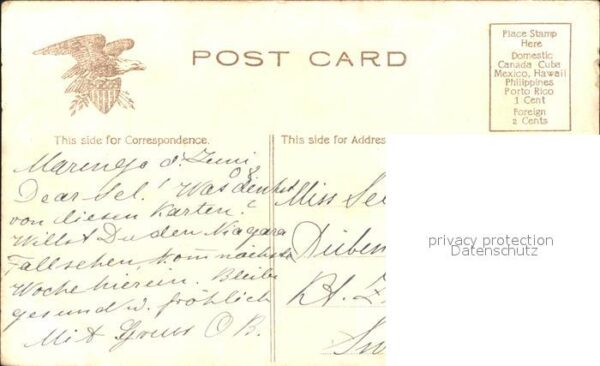 POST CARD
Place Stamp
Here
Domestic
Canada Cuba
Mexico, Hawaii
Philippines
Porto Rico
1 Cent
Foreign
2 Cents
This side for Correspondence.
Marengo d. Juni
08.
Dear Sel! Was denkst
von diesen Karten?
Willst Du den Niagara
Fall sehen kom nächste
Woche hierein. Bleibe
gesund u. fröhlich
Mit Gruss O B.
This side for Addres
Miss
Dieben
Kt. Z
privacy protection
Datenschutz